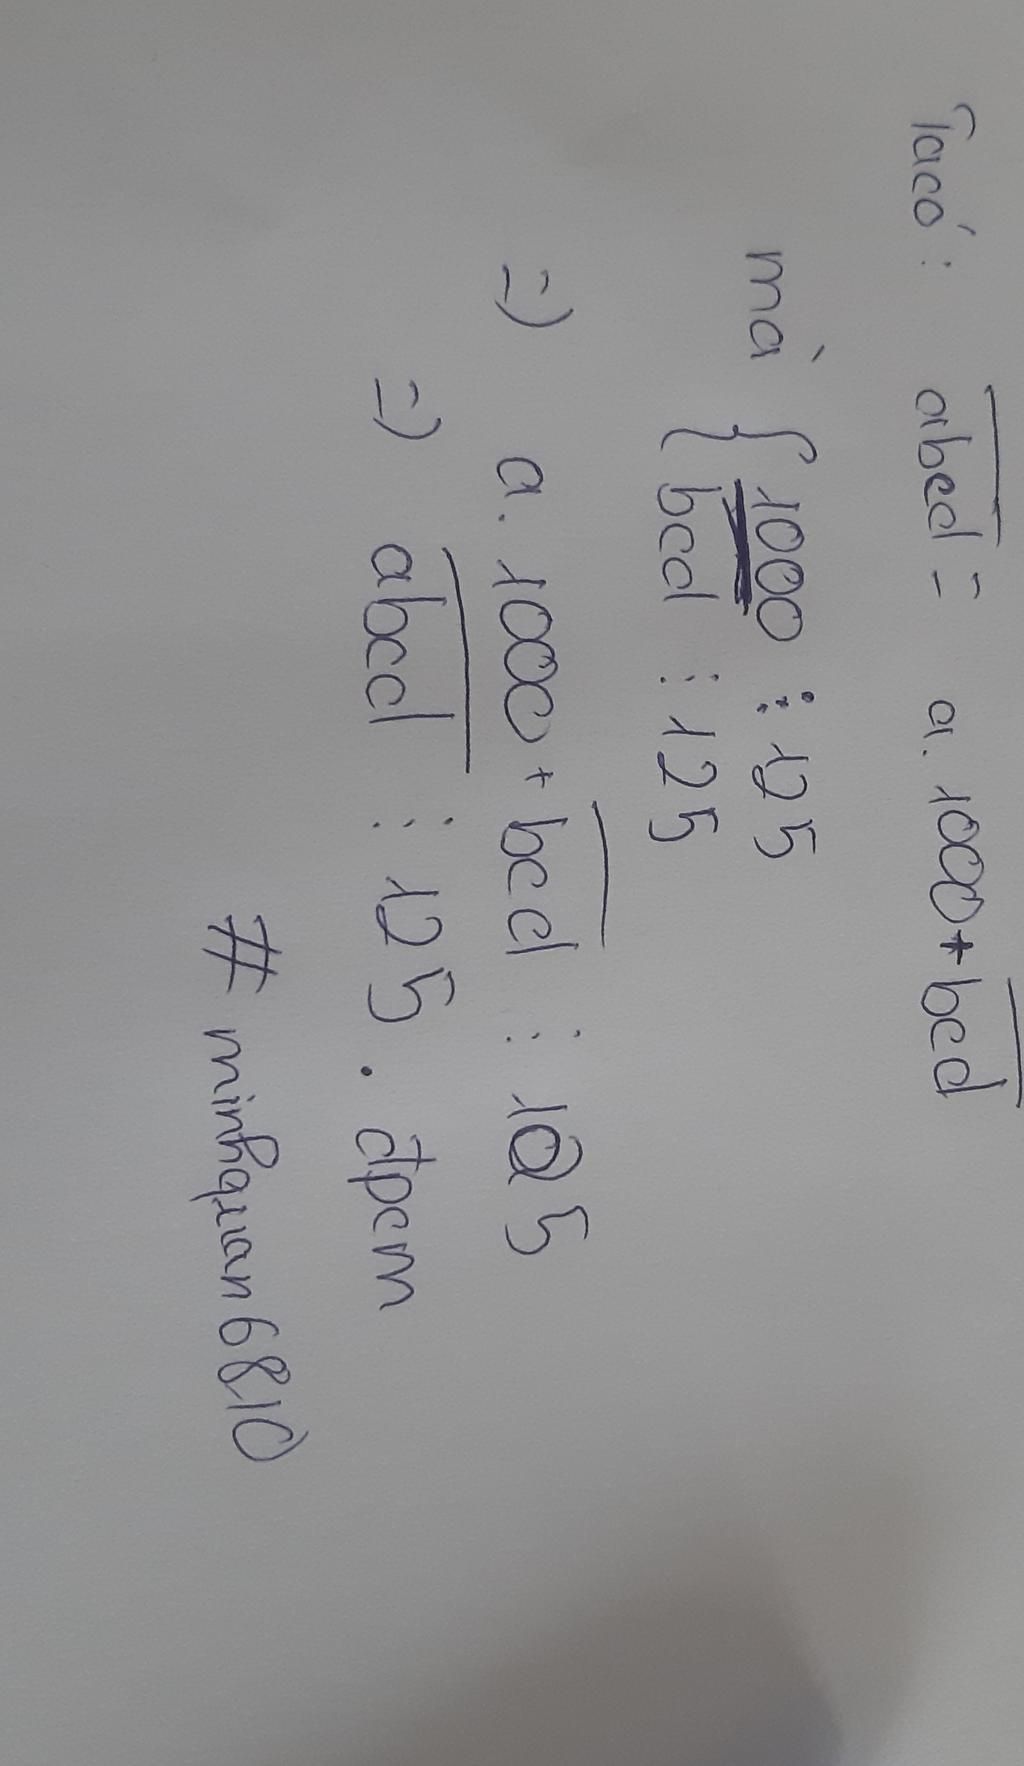 Ta có: \overline{abcd} = a.1000+\overline{bcd}
mà { 1000 ⋮ 125
\overline{bcd} ⋮ 125
=) a.1000+\overline{bcd} ⋮ 125
=) \overline{abcd} ⋮ 125. đpcm
# minhquan6810